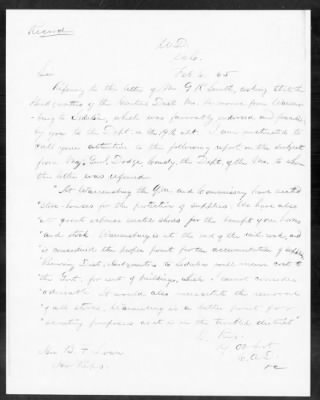 Record
W.D.
Feb 6 65
Sir
Referring to the letter of Mr G R Smith, asking that the
Head quarters of the Central Dist Mo. be moved from Warrens-
burg to Sedalia, which was favorably endorsed and
by you to the Dept on the 19th ult. I am instructed to
call your attention to the following report on the subject
from Maj. Genl. Dodge, Comdg. the Dept. of the Mo. to whom
the letter was referred
"At Warrensburg the Qm. and Commissary have erected
"store-houses for the protection of supplies. We have also
"at great expense erected sheds for the
"and stock. Warrensburg is at the end of the rail-road, and
"is considered the proper point for the accumulation of supplies
"Moving Dist. Head quarters to Sedalia will incur cost to
"the Govt. for rent of buildings, which I cannot consider
"advisable. It would also necessitate the removal
"of all stores. Warrensburg is a better point for
"scouting purposes as it is in the troubled district"
Hon B. F. Loan
Ho. Reps.